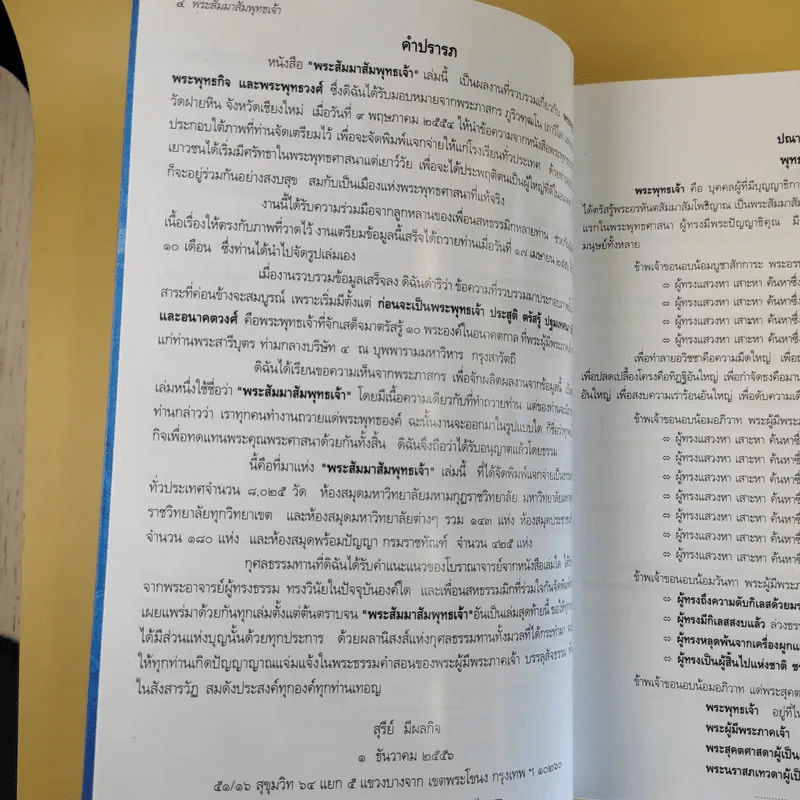 ๔ พระสัมมาสัมพุทธเจ้า
คำปรารภ
หนังสือ "พระสัมมาสัมพุทธเจ้า" เล่มนี้ เป็นผลงานที่รวบรวมเกี่ยวกับ
พระพุทธกิจ และพระพุทธวงศ์ ซึ่งดิฉันได้รับมอบหมายจากพระภาสกร ภูริวฑฺฒโน (ภาวิไล)
วัดฝายหิน จังหวัดเชียงใหม่ เมื่อวันที่ ๙ พฤษภาคม ๒๕๕๔ ให้นำข้อความจากหนังสือ
ประกอบใต้ภาพที่ท่านจัดเตรียมไว้ เพื่อจะจัดพิมพ์แจกจ่ายให้แก่โรงเรียนทั่วประเทศ
เยาวชนได้เริ่มมีศรัทธาในพระพุทธศาสนาแต่เยาว์วัย เพื่อจะได้ประพฤติตนเป็นผู้ใหญ่ที่ดี
ก็จะอยู่ร่วมกันอย่างสงบสุข สมกับเป็นเมืองแห่งพระพุทธศาสนาที่แท้จริง
งานนี้ได้รับความร่วมมือจากลูกหลานของเพื่อนสหธรรมิกหลายท่าน
เนื้อเรื่องให้ตรงกับภาพที่วาดไว้ งานเตรียมข้อมูลนี้เสร็จได้ถวายท่านเมื่อวันที่ ๑๗ เมษายน
๑๐ เดือน ซึ่งท่านได้นำไปจัดรูปเล่มเอง
เมื่องานรวบรวมข้อมูลเสร็จลง ดิฉันดำริว่า ข้อความที่รวบรวมมาประกอบภาพ
สาระที่ค่อนข้างจะสมบูรณ์ เพราะเริ่มมีตั้งแต่ ก่อนจะเป็นพระพุทธเจ้า ประสูติ ตรัสรู้
และอนาคตวงศ์ คือพระพุทธเจ้าที่จักเสด็จมาตรัสรู้ ๑๐ พระองค์ในอนาคตกาล ที่พระผู้มีพระภาค
แก่ท่านพระสารีบุตร ท่ามกลางบริษัท ๔ ณ บุพพารามมหาวิหาร กรุงสาวัตถี
ดิฉันได้เรียนขอความเห็นจากพระภาสกร เพื่อจักผลิตผลงานจากข้อมูลนี้
เล่มหนึ่งใช้ชื่อว่า "พระสัมมาสัมพุทธเจ้า" โดยมีเนื้อความเดียวกับที่ทำถวายท่าน
ท่านกล่าวว่า เราทุกคนทำงานถวายแด่พระพุทธองค์ ฉะนั้นงานจะออกมาในรูปแบบใด
กิจเพื่อทดแทนพระคุณพระศาสนาด้วยกันทั้งสิ้น ดิฉันจึงถือว่าได้รับอนุญาตแล้วโดยธรรม
นี้คือที่มาแห่ง "พระสัมมาสัมพุทธเจ้า" เล่มนี้ ที่ได้จัดพิมพ์แจกจ่ายเป็น
ทั่วประเทศจำนวน ๘,๐๒๕ วัด ห้องสมุดมหาวิทยาลัยมหามกุฏราชวิทยาลัย
ราชวิทยาลัยทุกวิทยาเขต และห้องสมุดมหาวิทยาลัยต่างๆ รวม ๑๔๓ แห่ง
จำนวน ๑๘๐ แห่ง และห้องสมุดพร้อมปัญญา กรมราชทัณฑ์ จำนวน ๔๒๕ แห่ง
กุศลธรรมทานที่ดิฉันได้รับคำแนะแนวของโบราณาจารย์จากหนังสือเล่มใด
จากพระอาจารย์ผู้ทรงธรรม ทรงวินัยในปัจจุบันองค์ใด และเพื่อนสหธรรมมิกที่ร่วมใจกัน
เผยแพร่มาด้วยกันทุกเล่มตั้งแต่ต้นตราบจน "พระสัมมาสัมพุทธเจ้า"อันเป็นเล่มสุดท้ายนี้
ได้มีส่วนแห่งบุญนั้นด้วยทุกประการ ด้วยผลานิสงส์แห่งกุศลธรรมทานทั้งมวลที่ได้กระทำมา
ให้ทุกท่านเกิดปัญญาญาณแจ่มแจ้งในพระธรรมคำสอนของพระผู้มีพระภาคเจ้า บรรลุสัจธรรม
ในสังสารวัฏ สมดังประสงค์ทุกองค์ทุกท่านเทอญ
สุรีย์ มีผลกิจ
๑ ธันวาคม ๒๕๕๖
๕๑/๑๖ สุขุมวิท ๖๔ แยก ๕ แขวงบางจาก เขตพระโขนง กรุงเทพ ฯ ๑๐๒๖๐
พระพุทธเจ้า คือ บุคคลผู้ที่มีบุญญาธิการ
ได้ตรัสรู้พระอรหันตสัมมาสัมโพธิญาณ เป็นพระสัมมาสัม
แรกในพระพุทธศาสนา ผู้ทรงมีพระปัญญาธิคุณ
มนุษย์ทั้งหลาย
ข้าพเจ้าขอนอบน้อมบูชาสักการะ
ผู้ทรงแสวงหา เสาะหา ค้นหาซึ่ง
ผู้ทรงแสวงหา เสาะหา ค้นหาซึ่ง
ผู้ทรงแสวงหา เสาะหา ค้นหาซึ่ง
ผู้ทรงแสวงหา เสาะหา ค้นหาซึ่ง
เพื่อทำลายอวิชชาคือความมืดใหญ่
เพื่อปลดเปลื้องโครงคือทิฏฐิอันใหญ่ เพื่อกำจัดธงคือมาน
อันใหญ่ เพื่อสงบความเร่าร้อนอันใหญ่
ข้าพเจ้าขอนอบน้อมอภิวาท
ผู้ทรงแสวงหา เสาะหา ค้นหาซึ่ง
ผู้ทรงแสวงหา เสาะหา ค้นหาซึ่ง
ผู้ทรงแสวงหา เสาะหา ค้นหาซึ่ง
ผู้ทรงแสวงหา เสาะหา ค้นหาซึ่ง
ผู้ทรงแสวงหา เสาะหา ค้นหาซึ่ง
ผู้ทรงแสวงหา เสาะหา ค้นหาซึ่ง
ข้าพเจ้าขอนอบน้อมวันทา
ผู้ทรงถึงความดับกิเลสด้วย
ผู้ทรงมีกิเลสสงบแล้ว
ผู้ทรงหลุดพ้นจากเครื่องผูก
ผู้ทรงเป็นผู้สิ้นไปแห่งชาติ
ข้าพเจ้าขอนอบน้อมอภิวาท แด่พระสุคต
พระพุทธเจ้า
พระผู้มีพระภาคเจ้า
พระสุคตศาสดาผู้เป็น
พระนราสภเทวดาผู้เป็น